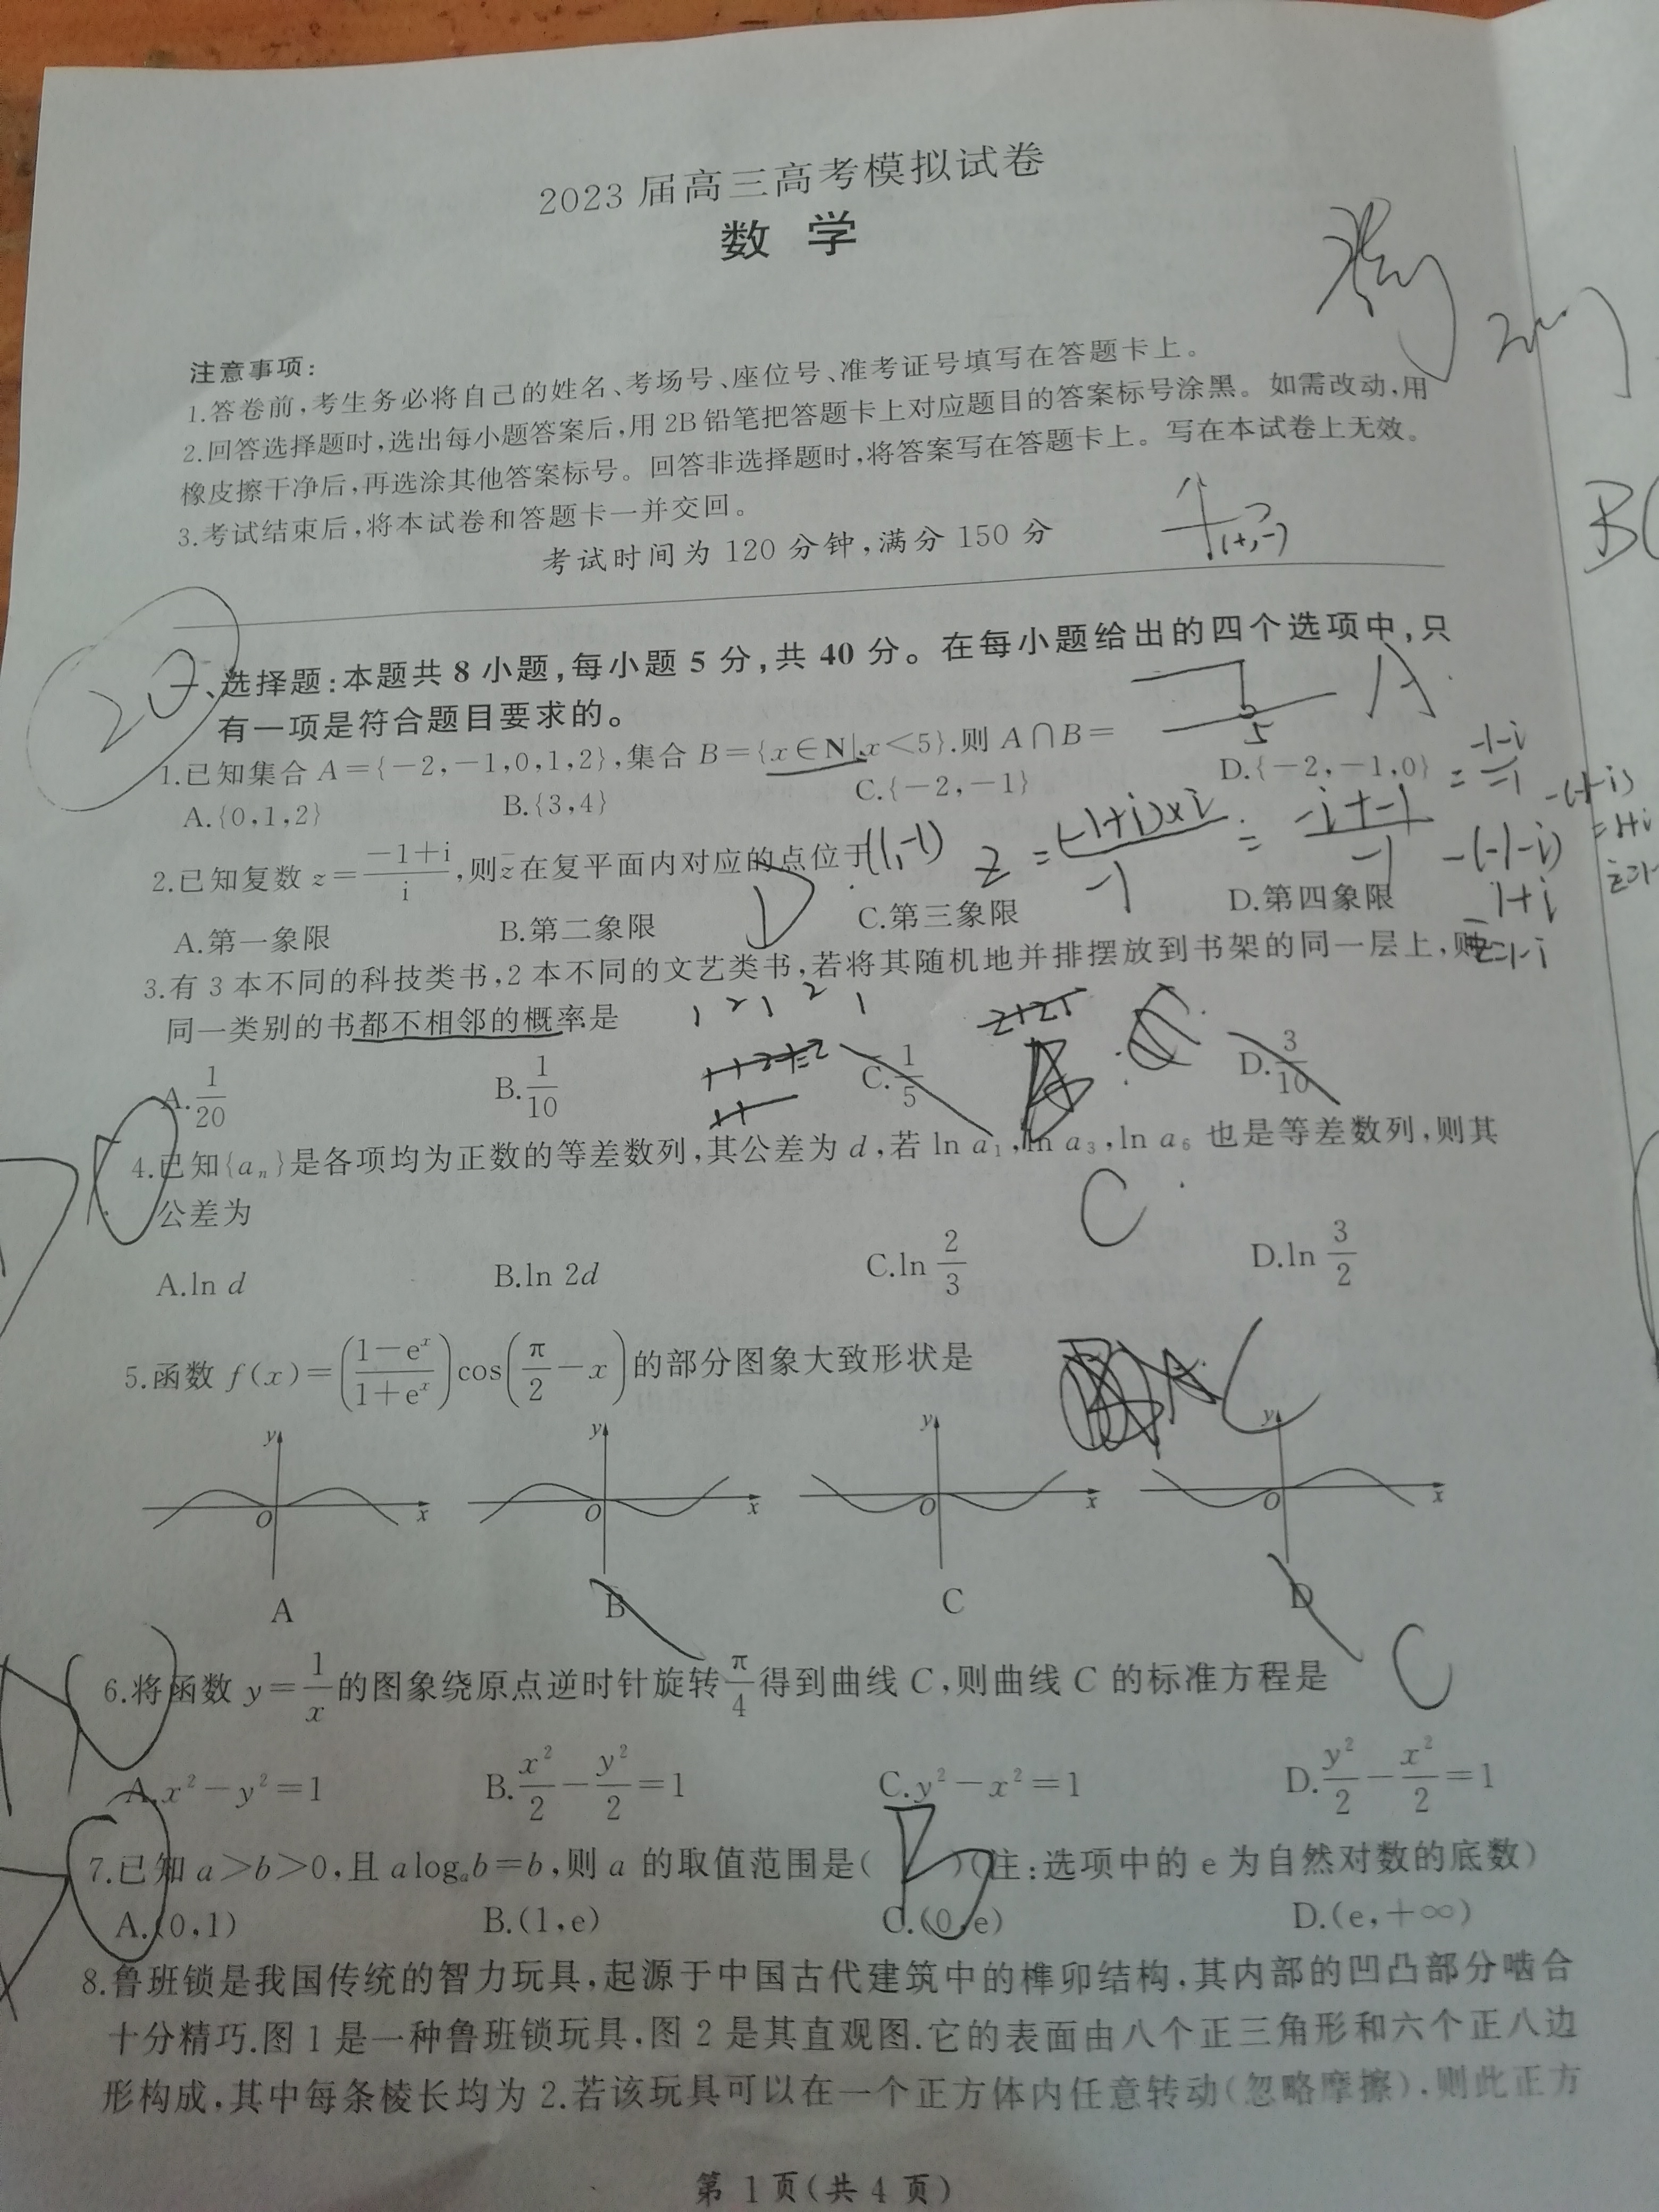 2023届高三高考模拟试卷
数 学
注意事项:
1.答卷前,考生务必将自己的姓名、考场号、座位号、准考证号填写在答题卡上。
2.回答选择题时,选出每小题答案后,用2B铅笔把答题卡上对应题目的答案标号涂黑。如需改动,用
橡皮擦干净后,再选涂其他答案标号。回答非选择题时,将答案写在答题卡上。写在本试卷上无效。
3.考试结束后,将本试卷和答题卡一并交回。
考试时间为120分钟,满分150分
(+,-)
B(
20
一、选择题:本题共8小题,每小题5分,共40分。在每小题给出的四个选项中,只
有一项是符合题目要求的。
5
A.
1.已知集合A={-2,-1,0,1,2},集合B={x∈N|x<5}.则A∩B=
A.{0,1,2} B.{3,4} C.{-2,-1} D.{-2,-1,0}
= (-1-i)/(-1)
2.已知复数z=(-1+i)/i,则z̄在复平面内对应的点位于
(1,-1) z = (-1+i)×i/(-1) = (-i+-1)/(-1) -(-1-i)
=1+i
1+i
D
A.第一象限 B.第二象限 C.第三象限 D.第四象限
z̄=1-i
3.有3本不同的科技类书,2本不同的文艺类书,若将其随机地并排摆放到书架的同一层上,则
同一类别的书都不相邻的概率是
1 2 1 2 1
A.1/20 B.1/10 C.1/5 D.3/10
4.已知{aₙ}是各项均为正数的等差数列,其公差为d,若ln a₁,ln a₃,ln a₆也是等差数列,则其
公差为
C
A.ln d B.ln 2d C.ln 2/3 D.ln 3/2
5.函数f(x)=((1-eˣ)/(1+eˣ))cos(π/2-x)的部分图象大致形状是
C
y y y y
O x O x O x O x
A B C D
6.将函数y=1/x的图象绕原点逆时针旋转π/4得到曲线C,则曲线C的标准方程是
C
A.x²-y²=1 B.x²/2-y²/2=1 C.y²-x²=1 D.y²/2-x²/2=1
7.已知a>b>0,且alogₐb=b,则a的取值范围是( )(注:选项中的e为自然对数的底数)
B
A.(0,1) B.(1,e) C.(0,e) D.(e,+∞)
8.鲁班锁是我国传统的智力玩具,起源于中国古代建筑中的榫卯结构,其内部的凹凸部分啮合
十分精巧.图1是一种鲁班锁玩具,图2是其直观图.它的表面由八个正三角形和六个正八边
形构成,其中每条棱长均为2.若该玩具可以在一个正方体内任意转动(忽略摩擦),则此正方
第1页(共4页)